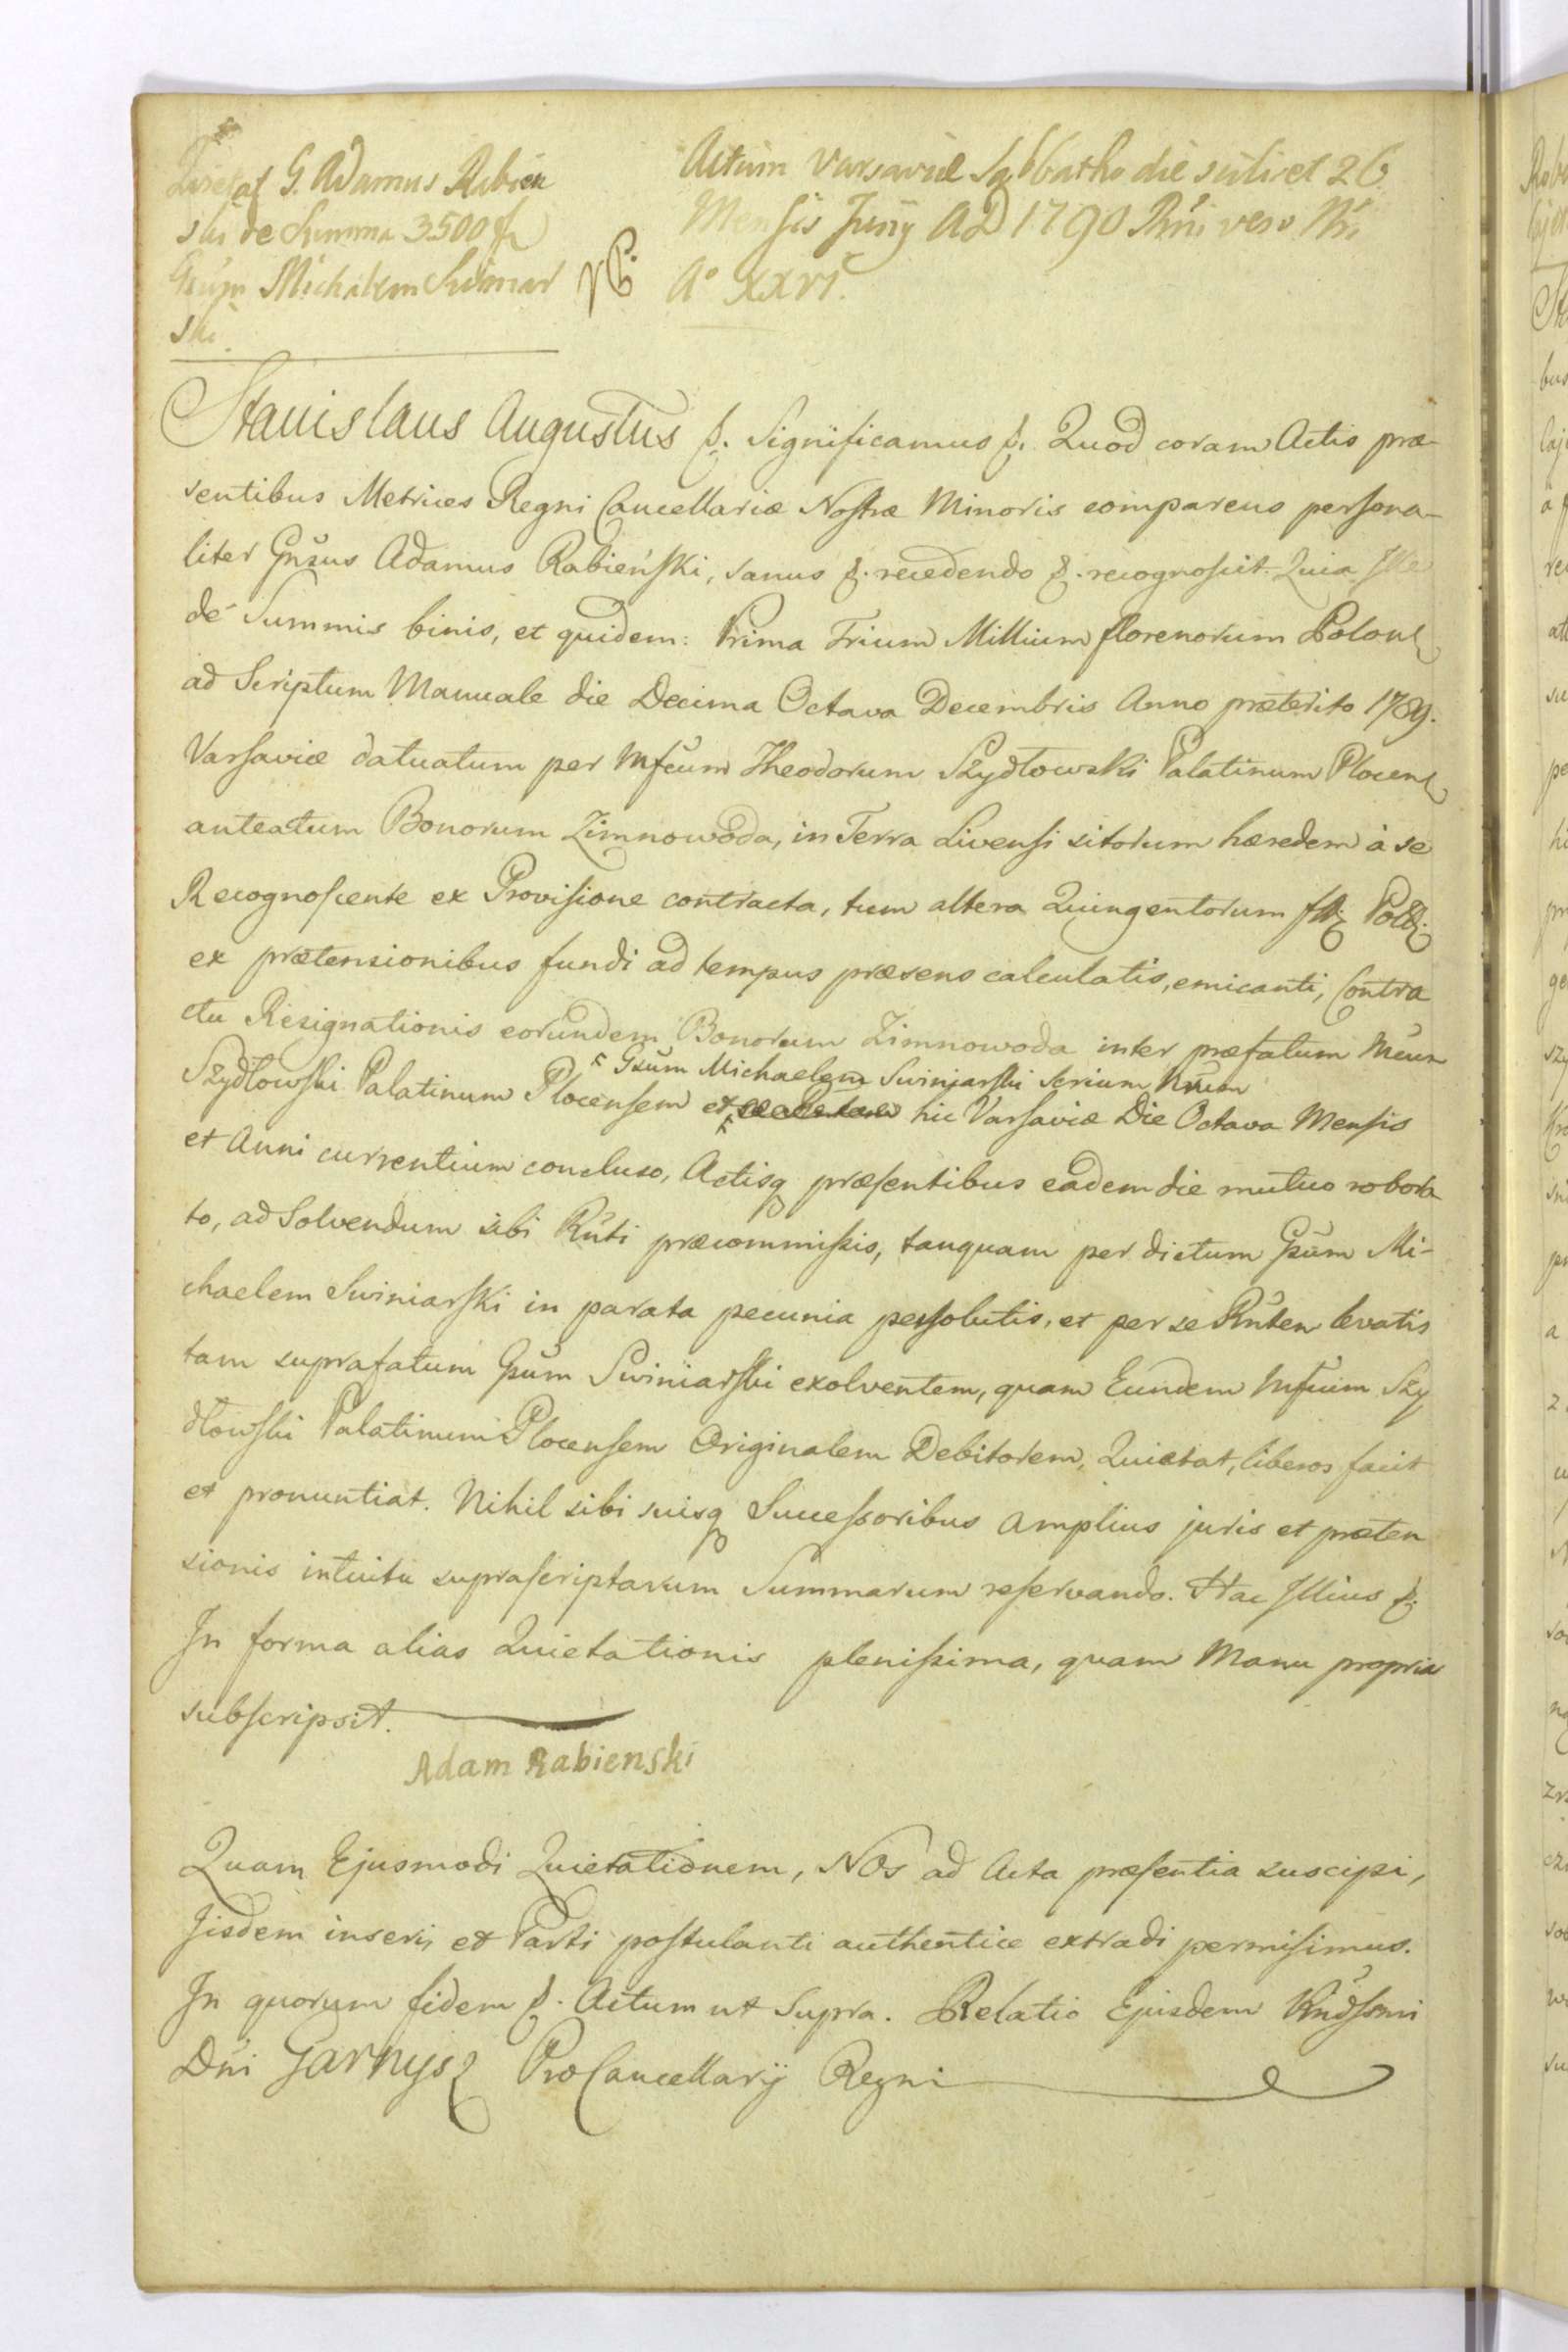 Quietat G. Adamus Rabien
ski de Summa 3500 fl
Gsum Michaelem Swiniar
ski.
Actum Varsaviæ Sabbatho die scilicet 26
Mensis Junij AD 1790 Rni vero Nri
Aº XXVI.
Stanislaus Augustus &. Significamus &. Quod coram Actis præ-
sentibus Metrices Regni Cancellariæ Nostræ Minoris comparens persona-
liter Gnsus Adamus Rabieński, sanus &. recedendo &. recognoscit. Quia Ille
de Summis binis, et quidem: Prima Trium Millium florenorum Polonl
ad Scriptum Manuale die Decima Octava Decembris Anno præterito 1789.
Varsaviæ datuatum per Mfcum Theodorum Szydłowski Palatinum Plocens
anteatum Bonorum Zimnowoda, in Terra Livensi sitorum hæredem à se
Recognoscente ex Provisione contracta, tum altera Quingentorum flz Poll.
ex prætensionibus fundi ad tempus præsens calculatis, emicanti, Contra
ctu Resignationis eorundem Bonorum Zimnowoda inter præfatum Mcum
Gsum Michaelem Swiniarski
Szydłowski Palatinum Plocensem et hic Varsaviæ Die Octava Mensis
et Anni currentium concluso, Actisq præsentibus eadem die mutuo robora
to, ad Solvendum sibi Rnti præcommissis, tanquam per dictum Gsum Mi-
chaelem Swiniarski in parata pecunia persolutis, et per se Rnten levatis
tam suprafatum Gsum Swiniarski exolventem, quam Eundem Mfcum Szy
dłowski Palatinum Plocensem Originalem Debitorem, Quietat, liberos facit
et pronuntiat. Nihil sibi suisq Successoribus amplius juris et præten
sionis intuitu suprascriptarum Summarum reservando. Hac Illius &.
In forma alias Quietationis plenissima, quam Manu propria
subscripsit.
Adam Rabienski
Quam Ejusmodi Quietationem, NOS ad Acta præsentia suscipi,
Iisdem inseri, et Parti postulanti authentice extradi permisimus.
In quorum fidem &. Actum ut Supra. Relatio Ejusdem Rndssmi
Dni Garnysz ProCancellarij Regni